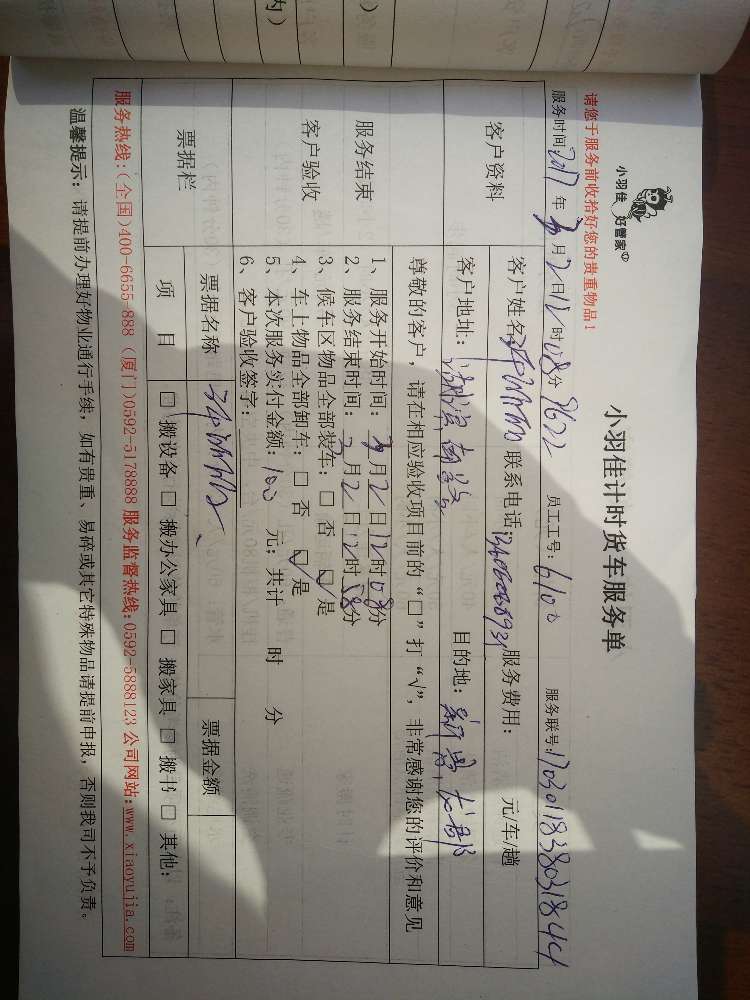 内）
小羽佳 好管家
小羽佳计时货车服务单
请您于服务前收拾好您的贵重物品！
服务时间：2017年3月2日12时08分 8622 员工工号：6100 服务联号：1703011838031844
客户资料 客户姓名 联系电话 服务费用： 元/车/趟
客户地址：湖滨南路 目的地：
服务结束
客户验收
尊敬的客户，请在相应验收项目前的“□”打“√”，非常感谢您的评价和意见
1、服务开始时间：3月2日12时08分
2、服务结束时间：3月2日12时58分
3、候车区物品全部装车：□ 否 ☑ 是
4、车上物品全部卸车：□ 否 ☑ 是
5、本次服务实付金额：100 元；共计 时 分
6、客户验收签字：
票据栏 票据名称 票据金额
项 目 □ 搬设备 □ 搬办公家具 □ 搬家具 □ 搬书 □ 其他：
服务热线：(全国)400-6655-888 (厦门)0592-5178888 服务监督热线:0592-5888123 公司网站:www.xiaoyujia.com
温馨提示：请提前办理好物业通行手续，如有贵重、易碎或其它特殊物品请提前申报，否则我司不予负责。